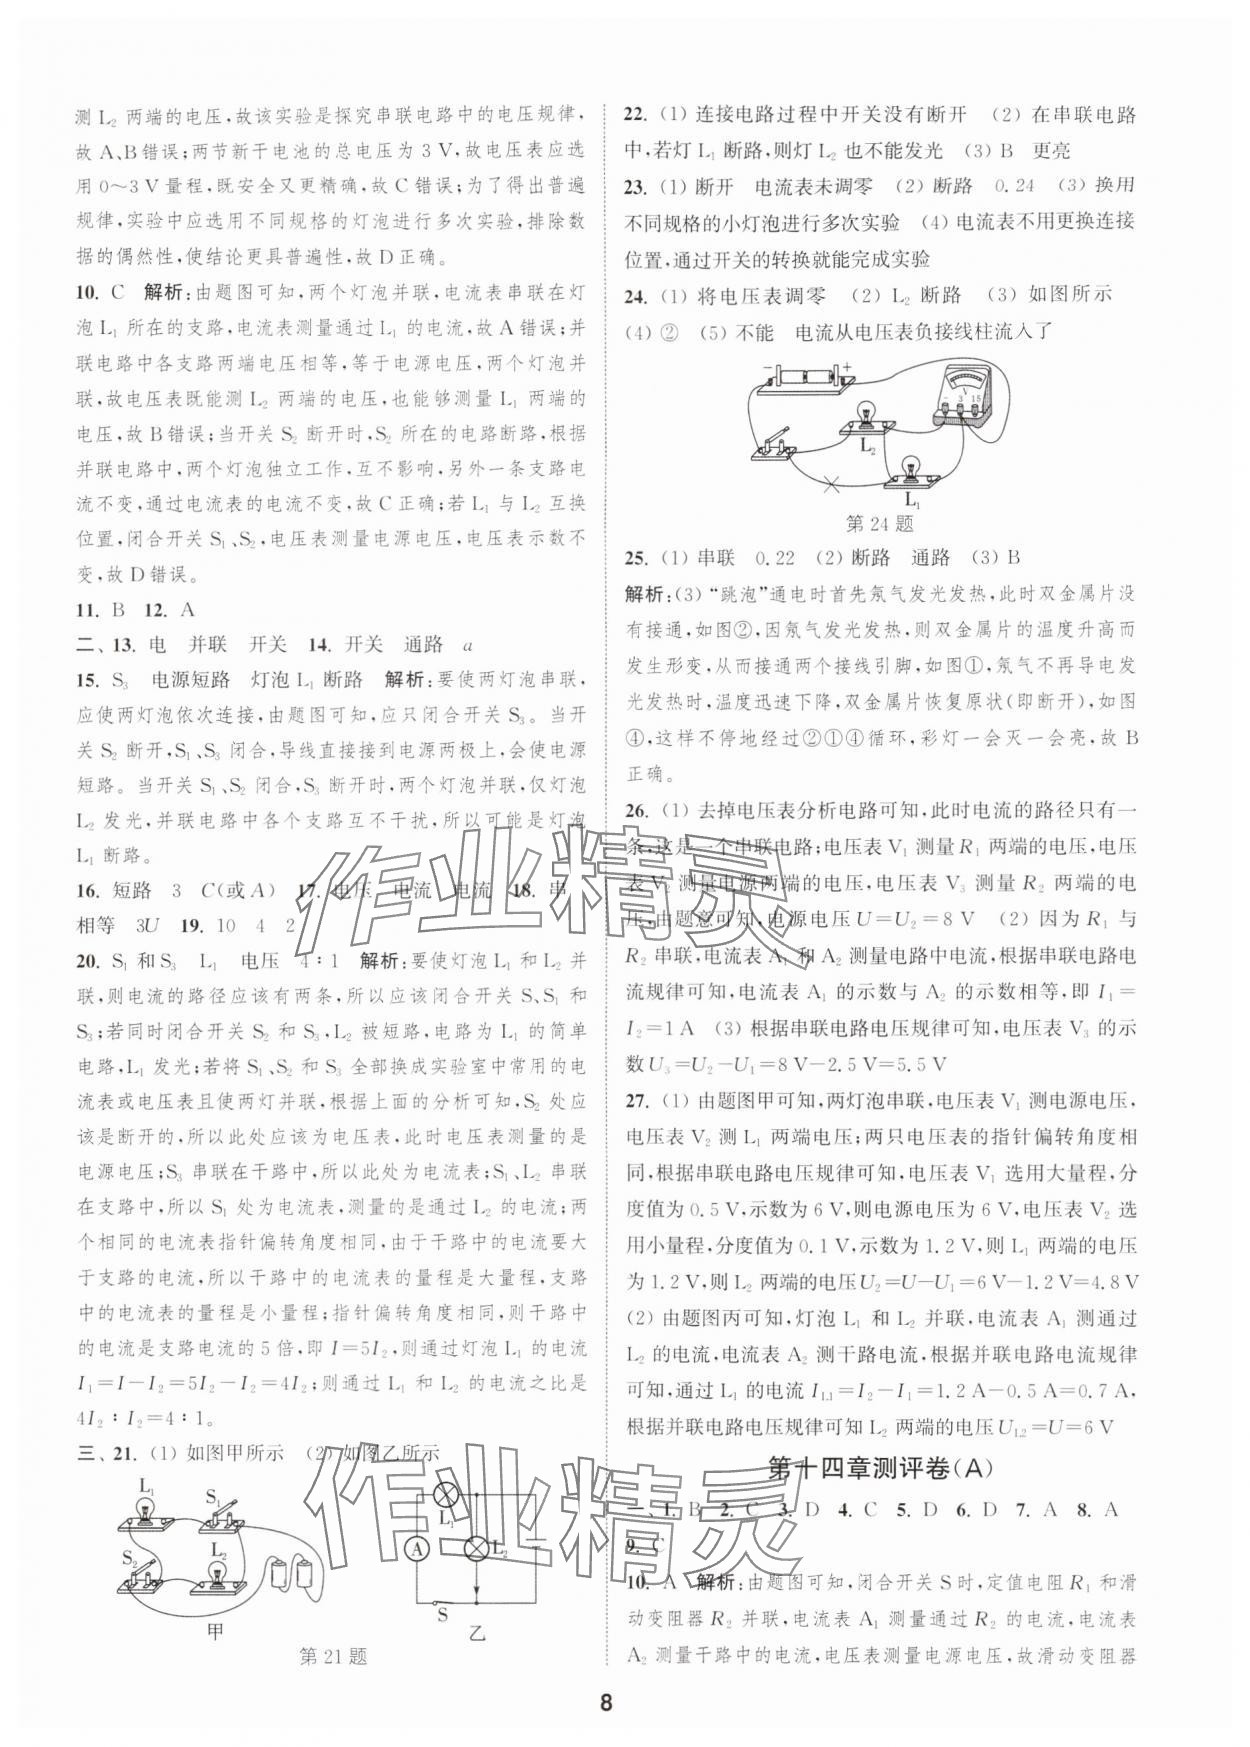 测 L₂ 两端的电压,故该实验是探究串联电路中的电压规律,
故 A、B错误;两节新干电池的总电压为 3 V,故电压表应选
用 0～3 V 量程,既安全又更精确,故 C 错误;为了得出普遍
规律,实验中应选用不同规格的灯泡进行多次实验,排除数
据的偶然性,使结论更具普遍性,故 D 正确。
10. C 解析:由题图可知,两个灯泡并联,电流表串联在灯
泡 L₁ 所在的支路,电流表测量通过 L₁ 的电流,故 A 错误;并
联电路中各支路两端电压相等,等于电源电压,两个灯泡并
联,故电压表既能测 L₂ 两端的电压,也能够测量 L₁ 两端的
电压,故 B 错误;当开关 S₂ 断开时,S₂ 所在的电路断路,根据
并联电路中,两个灯泡独立工作,互不影响,另外一条支路电
流不变,通过电流表的电流不变,故 C 正确;若 L₁ 与 L₂ 互换
位置,闭合开关 S₁、S₂,电压表测量电源电压,电压表示数不
变,故 D 错误。
11. B 12. A
二、13. 电 并联 开关 14. 开关 通路 a
15. S₃ 电源短路 灯泡 L₁ 断路 解析:要使两灯泡串联,
应使两灯泡依次连接,由题图可知,应只闭合开关 S₃。当开
关 S₂ 断开,S₁、S₃ 闭合,导线直接接到电源两极上,会使电源
短路。当开关 S₁、S₂ 闭合,S₃ 断开时,两个灯泡并联,仅灯泡
L₂ 发光,并联电路中各个支路互不干扰,所以可能是灯泡
L₁ 断路。
16. 短路 3 C(或 A) 17. 电压 电流 电流 18. 串
相等 3U 19. 10 4 2
20. S₁ 和 S₃ L₁ 电压 4∶1 解析:要使灯泡 L₁ 和 L₂ 并
联,则电流的路径应该有两条,所以应该闭合开关 S、S₁ 和
S₃;若同时闭合开关 S₂ 和 S₃,L₂ 被短路,电路为 L₁ 的简单
电路,L₁ 发光;若将 S₁、S₂ 和 S₃ 全部换成实验室中常用的电
流表或电压表且使两灯并联,根据上面的分析可知,S₂ 处应
该是断开的,所以此处应该为电压表,此时电压表测量的是
电源电压;S₃ 串联在干路中,所以此处为电流表;S₁、L₂ 串联
在支路中,所以 S₁ 处为电流表,测量的是通过 L₂ 的电流;两
个相同的电流表指针偏转角度相同,由于干路中的电流要大
于支路的电流,所以干路中的电流表的量程是大量程,支路
中的电流表的量程是小量程;指针偏转角度相同,则干路中
的电流是支路电流的 5 倍,即 I=5I₂,则通过灯泡 L₁ 的电流
I₁=I－I₂=5I₂－I₂=4I₂;则通过 L₁ 和 L₂ 的电流之比是
4I₂∶I₂=4∶1。
三、21. (1) 如图甲所示 (2) 如图乙所示
L₁
S₁
S₂
L₂
甲
L₁
A
L₂
S
乙
第 21 题
22. (1) 连接电路过程中开关没有断开 (2) 在串联电路
中,若灯 L₁ 断路,则灯 L₂ 也不能发光 (3) B 更亮
23. (1) 断开 电流表未调零 (2) 断路 0.24 (3) 换用
不同规格的小灯泡进行多次实验 (4) 电流表不用更换连接
位置,通过开关的转换就能完成实验
24. (1) 将电压表调零 (2) L₂ 断路 (3) 如图所示
(4) ② (5) 不能 电流从电压表负接线柱流入了
－ ＋
－ 3 15
L₂
L₁
第 24 题
25. (1) 串联 0.22 (2) 断路 通路 (3) B
解析:(3) “跳泡”通电时首先氖气发光发热,此时双金属片没
有接通,如图②,因氖气发光发热,则双金属片的温度升高而
发生形变,从而接通两个接线引脚,如图①,氖气不再导电发
光发热时,温度迅速下降,双金属片恢复原状(即断开),如图
④,这样不停地经过②①④循环,彩灯一会灭一会亮,故 B
正确。
26. (1) 去掉电压表分析电路可知,此时电流的路径只有一
条,这是一个串联电路;电压表 V₁ 测量 R₁ 两端的电压,电压
表 V₂ 测量电源两端的电压,电压表 V₃ 测量 R₂ 两端的电
压,由题意可知,电源电压 U=U₂=8 V (2) 因为 R₁ 与
R₂ 串联,电流表 A₁ 和 A₂ 测量电路中电流,根据串联电路电
流规律可知,电流表 A₁ 的示数与 A₂ 的示数相等,即 I₁=
I₂=1 A (3) 根据串联电路电压规律可知,电压表 V₃ 的示
数 U₃=U₂－U₁=8 V－2.5 V=5.5 V
27. (1) 由题图甲可知,两灯泡串联,电压表 V₁ 测电源电压,
电压表 V₂ 测 L₁ 两端电压;两只电压表的指针偏转角度相
同,根据串联电路电压规律可知,电压表 V₁ 选用大量程,分
度值为 0.5 V,示数为 6 V,则电源电压为 6 V,电压表 V₂ 选
用小量程,分度值为 0.1 V,示数为 1.2 V,则 L₁ 两端的电压
为 1.2 V,则 L₂ 两端的电压 U₂=U－U₁=6 V－1.2 V=4.8 V
(2) 由题图丙可知,灯泡 L₁ 和 L₂ 并联,电流表 A₁ 测通过
L₂ 的电流,电流表 A₂ 测干路电流,根据并联电路电流规律
可知,通过 L₁ 的电流 I_L1=I₂－I₁=1.2 A－0.5 A=0.7 A,
根据并联电路电压规律可知 L₂ 两端的电压 U_L2=U=6 V
第十四章测评卷(A)
一、1. B 2. C 3. D 4. C 5. D 6. D 7. A 8. A
9. C
10. A 解析:由题图可知,闭合开关 S 时,定值电阻 R₁ 和滑
动变阻器 R₂ 并联,电流表 A₁ 测量通过 R₂ 的电流,电流表
A₂ 测量干路中的电流,电压表测量电源电压,故滑动变阻器
8
作业精灵
作业精灵